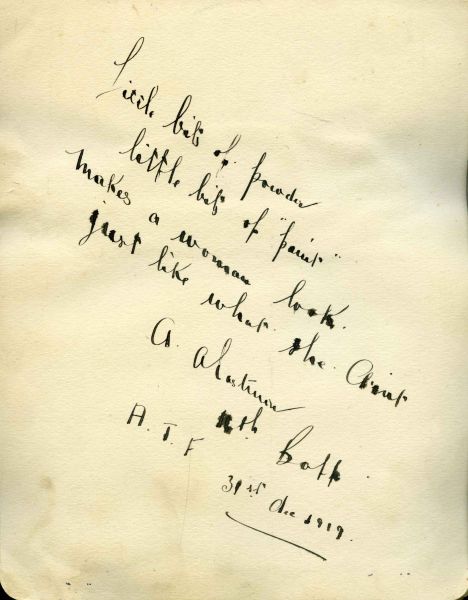 Little bits of powder
little bits of "paint"
makes a woman look.
just like what she Aint
A.
A. I. F Batt.
31st Dec 1919.